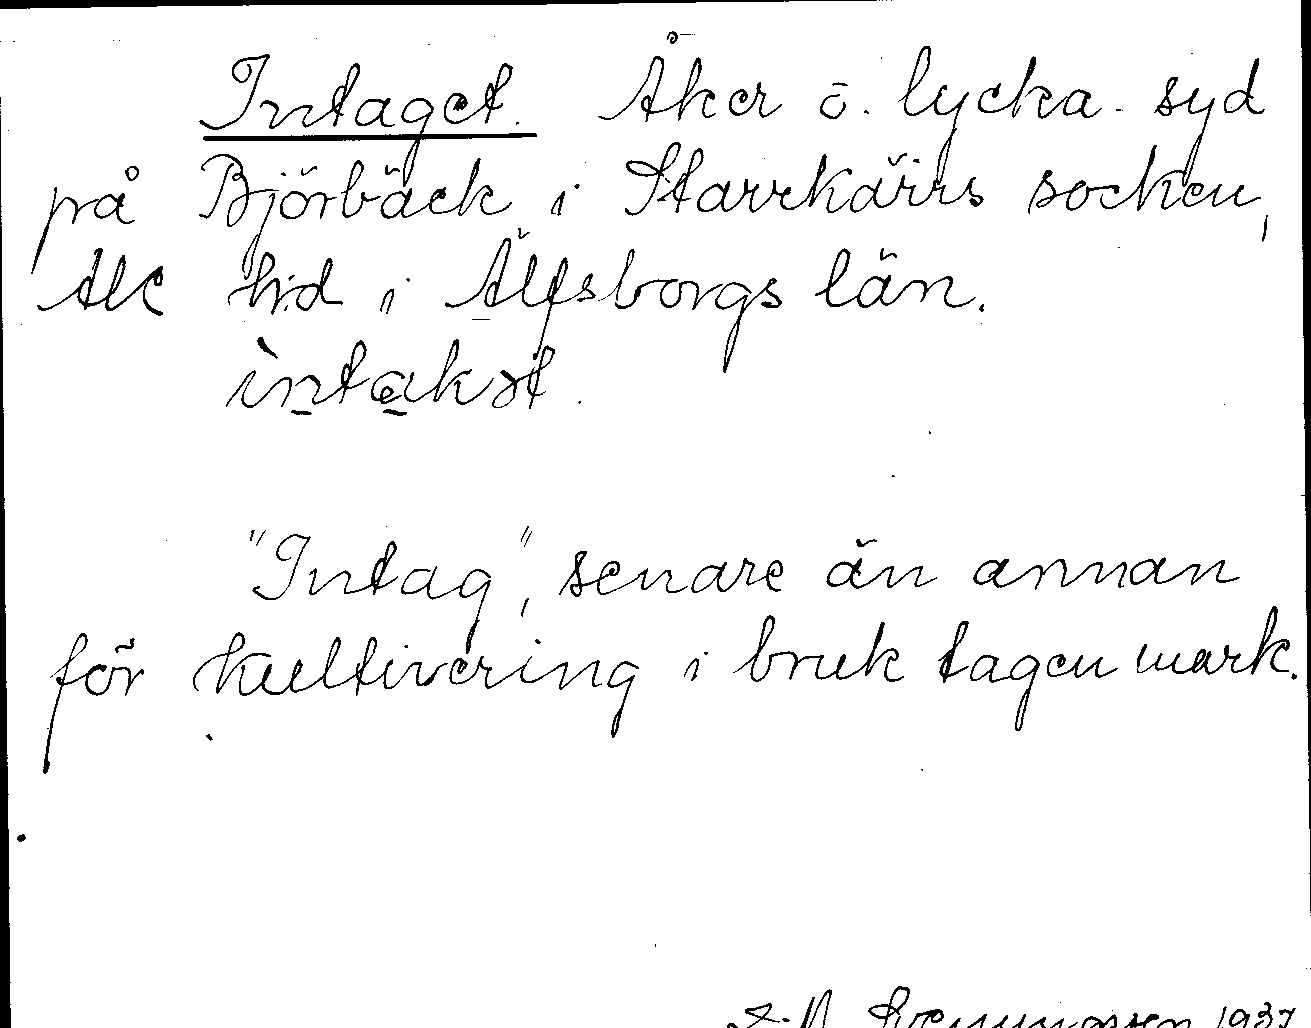 Intaget. Åker ö. lycka. syd
på Björbäck i Starrkärrs socken,
Ale hd i Älfsborgs län.
ìntakət.
"Intag", senare än annan
för kultivering i bruk tagen mark.
1937